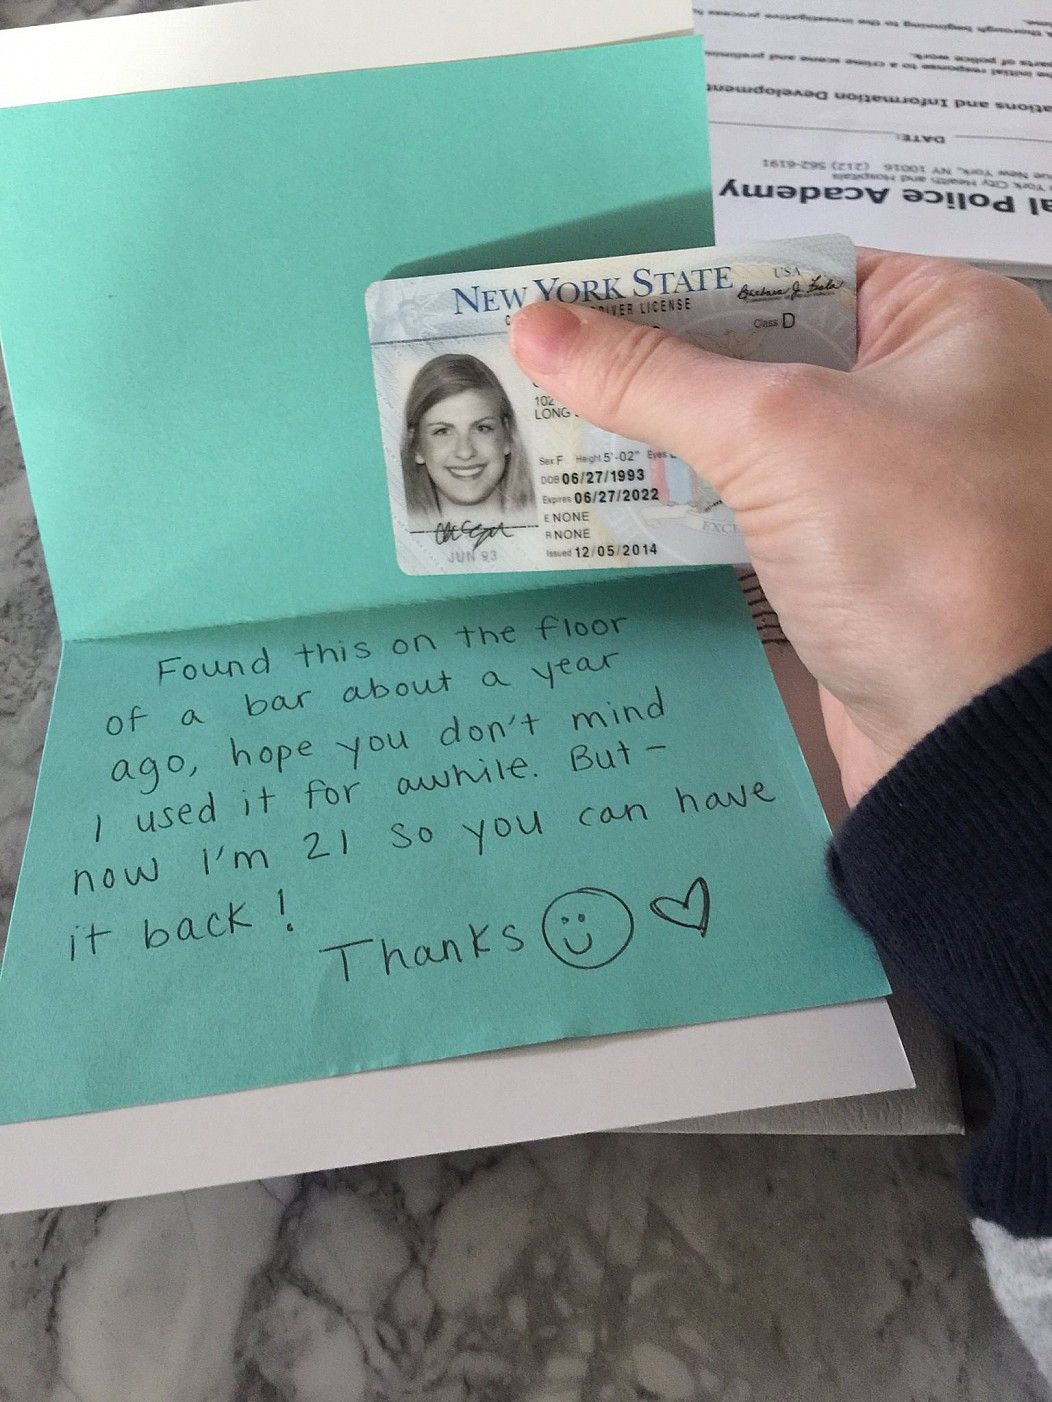 al Police Academy
York City Health and Hospitals
nue New York, NY 10016 (212) 562-6191
DATE:
ations and Information Development
he initial response to a crime scene and
parts of police work.
thorough beginning to the investigative process
NEW YORK STATE
USA
IVER LICENSE
Class D
102
LONG
Sex F Height 5'-02" Eyes
DOB 06/27/1993
Expires 06/27/2022
E NONE
R NONE
Issued 12/05/2014
JUN 93
EXC
Found this on the floor
of a bar about a year
ago, hope you don't mind
I used it for awhile. But –
now I'm 21 so you can have
it back!
Thanks